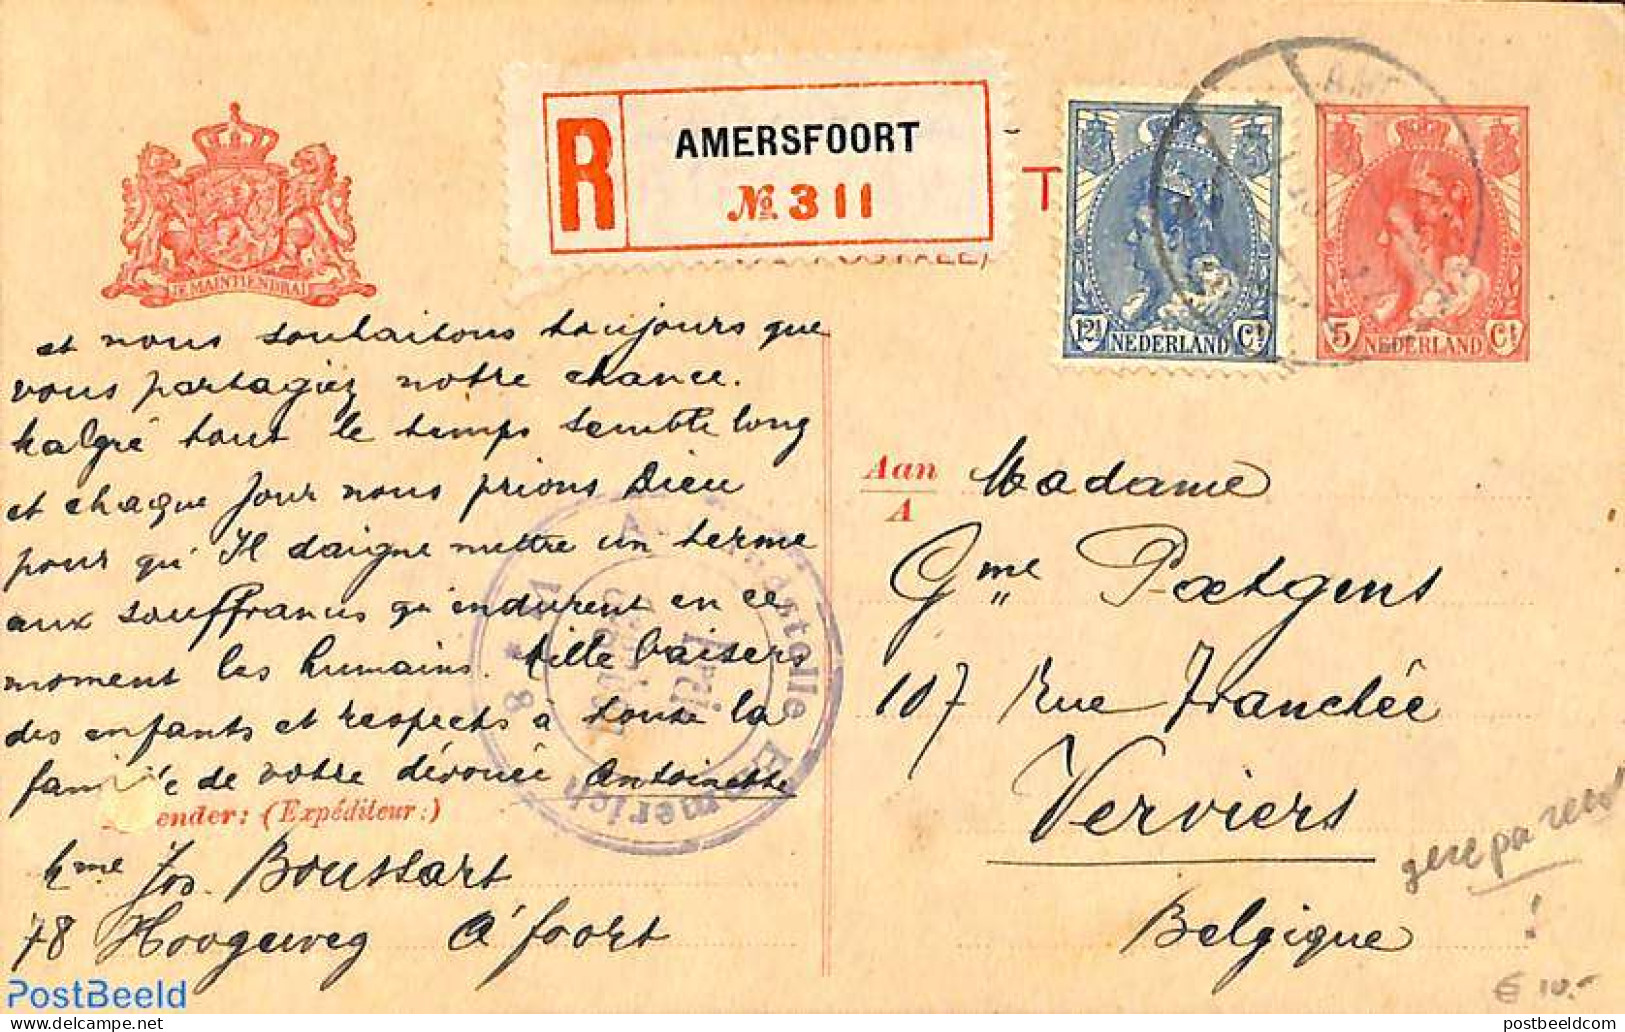 R
AMERSFOORT
№ 311
T
JE MAINTIENDRAI
12½ NEDERLAND Ct
5 NEDERLAND Ct
AME
et nous souhaitons toujours que
vous partagiez notre chance.
Malgré tout le temps semble long
et chaque jour nous prions Dieu
pour qu'Il daigne mettre un terme
aux souffrances qu'endurent en ce
moment les humains. Mille baisers
des enfants et respects à toute la
famille de votre dévouée Antoinette
ender: (Expéditeur:)
Mme Jos. Boussart
78 Hoogeweg A'foort
Emmerich
Aan
A
Madame
Gme Paetgens
107 Rue Franchée
Verviers
Belgique
gerepareerd
!
€ 10.-
PostBeeld
postbeeldcom